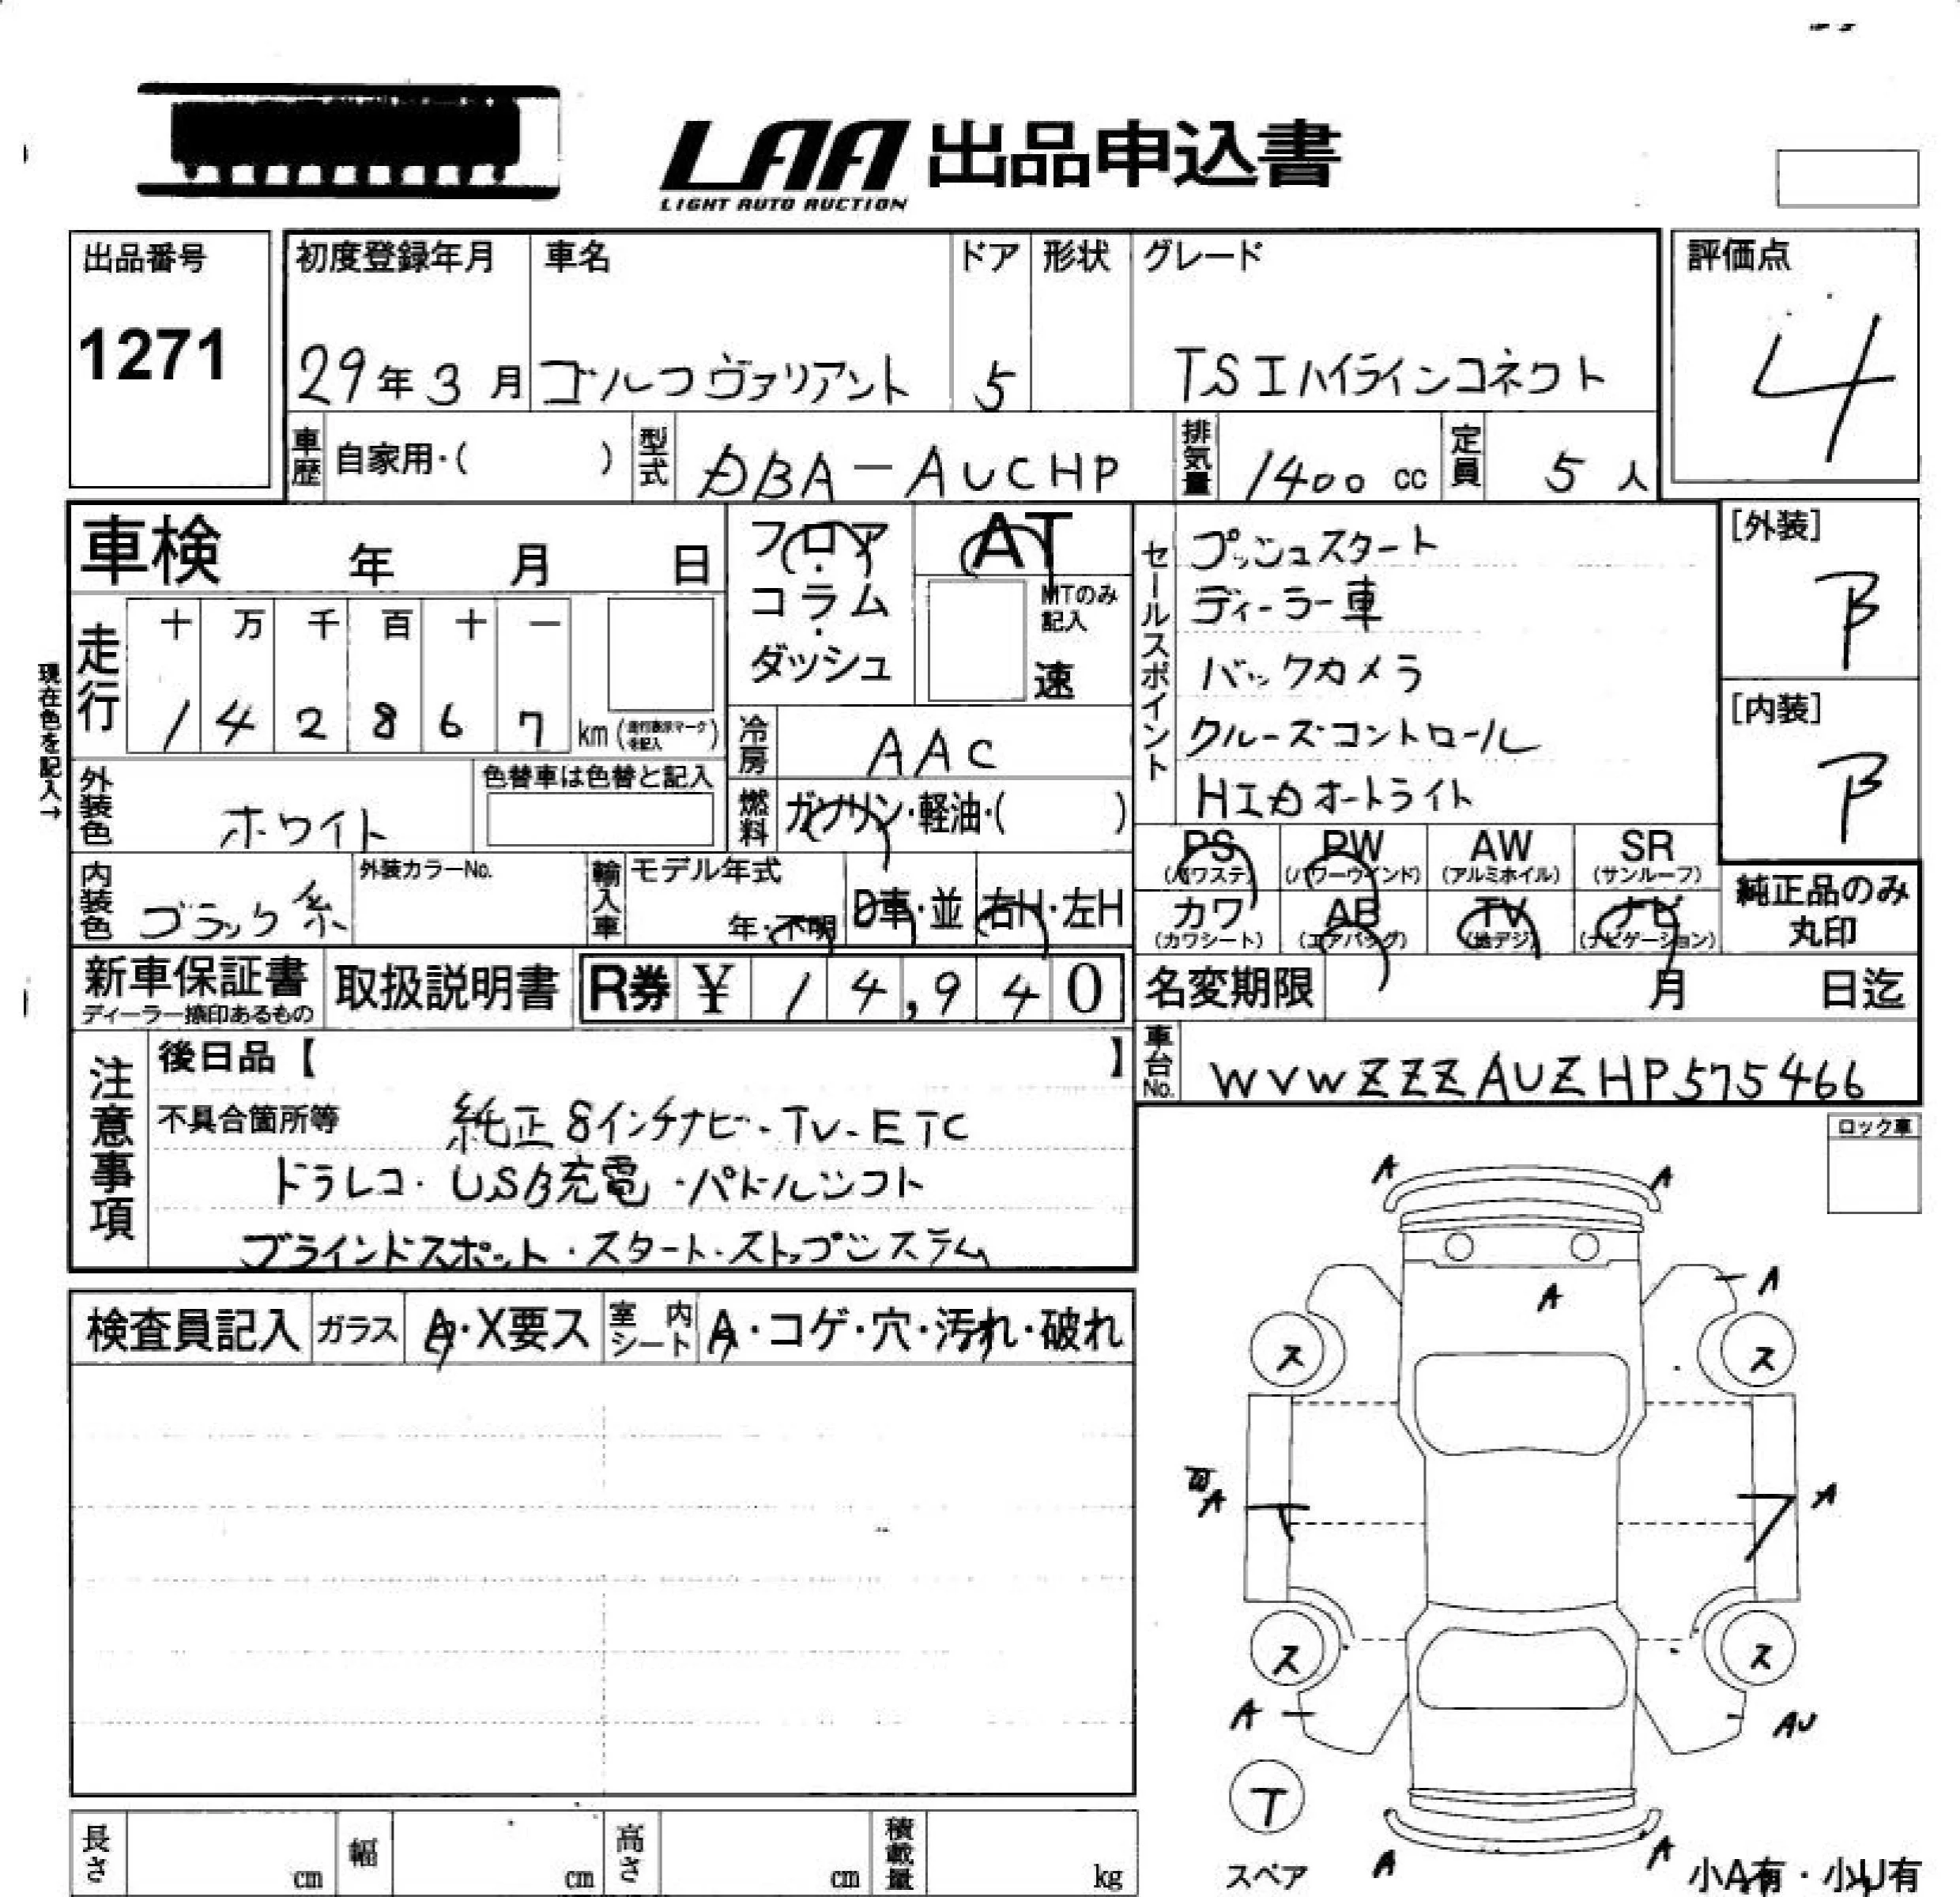 LAA 出品申込書
LIGHT AUTO AUCTION
出品番号
1271
初度登録年月 車名 ドア 形状 グレード
29年3月 ゴルフヴァリアント 5 TSIハイラインコネクト
評価点
4
車歴 自家用・( ) 型式 DBA-AUCHP 排気量 1400cc 定員 5人
車検 年 月 日
フロア・コラム・ダッシュ
AT
MTのみ記入
速
現在色を記入→
走行 十 万 千 百 十 一
1 4 2 8 6 7 km
冷房 AAC
外装色 ホワイト 色替車は色替と記入
燃料 ガソリン・軽油・( )
内装色 ブラック系 外装カラーNo.
輸入車 モデル年式 年・不明 D車・並 右H・左H
セールスポイント
プッシュスタート
ディーラー車
バックカメラ
クルーズコントロール
HIDオートライト
[外装]
B
[内装]
B
PS (パワステ) PW (パワーウインド) AW (アルミホイル) SR (サンルーフ)
カワ (カワシート) AB (エアバッグ) TV (地デジ) ナビ (ナビゲーション)
純正品のみ丸印
新車保証書 ディーラー捺印あるもの 取扱説明書 R券 ¥ 14,940
名変期限 月 日迄
車台No. WVWZZZAUZHP575466
注意事項
後日品【 】
不具合箇所等 純正8インチナビ・TV・ETC
ドラレコ・USB充電・パドルシフト
ブラインドスポット・スタート・ストップシステム
ロック車
検査員記入 ガラス A・X要ス 室内シート A・コゲ・穴・汚れ・破れ
A A
A A
ス ス
A フ A
ス ス
A AU
T
スペア
A A
小A有・小U有
長さ cm 幅 cm 高さ cm 積載量 kg